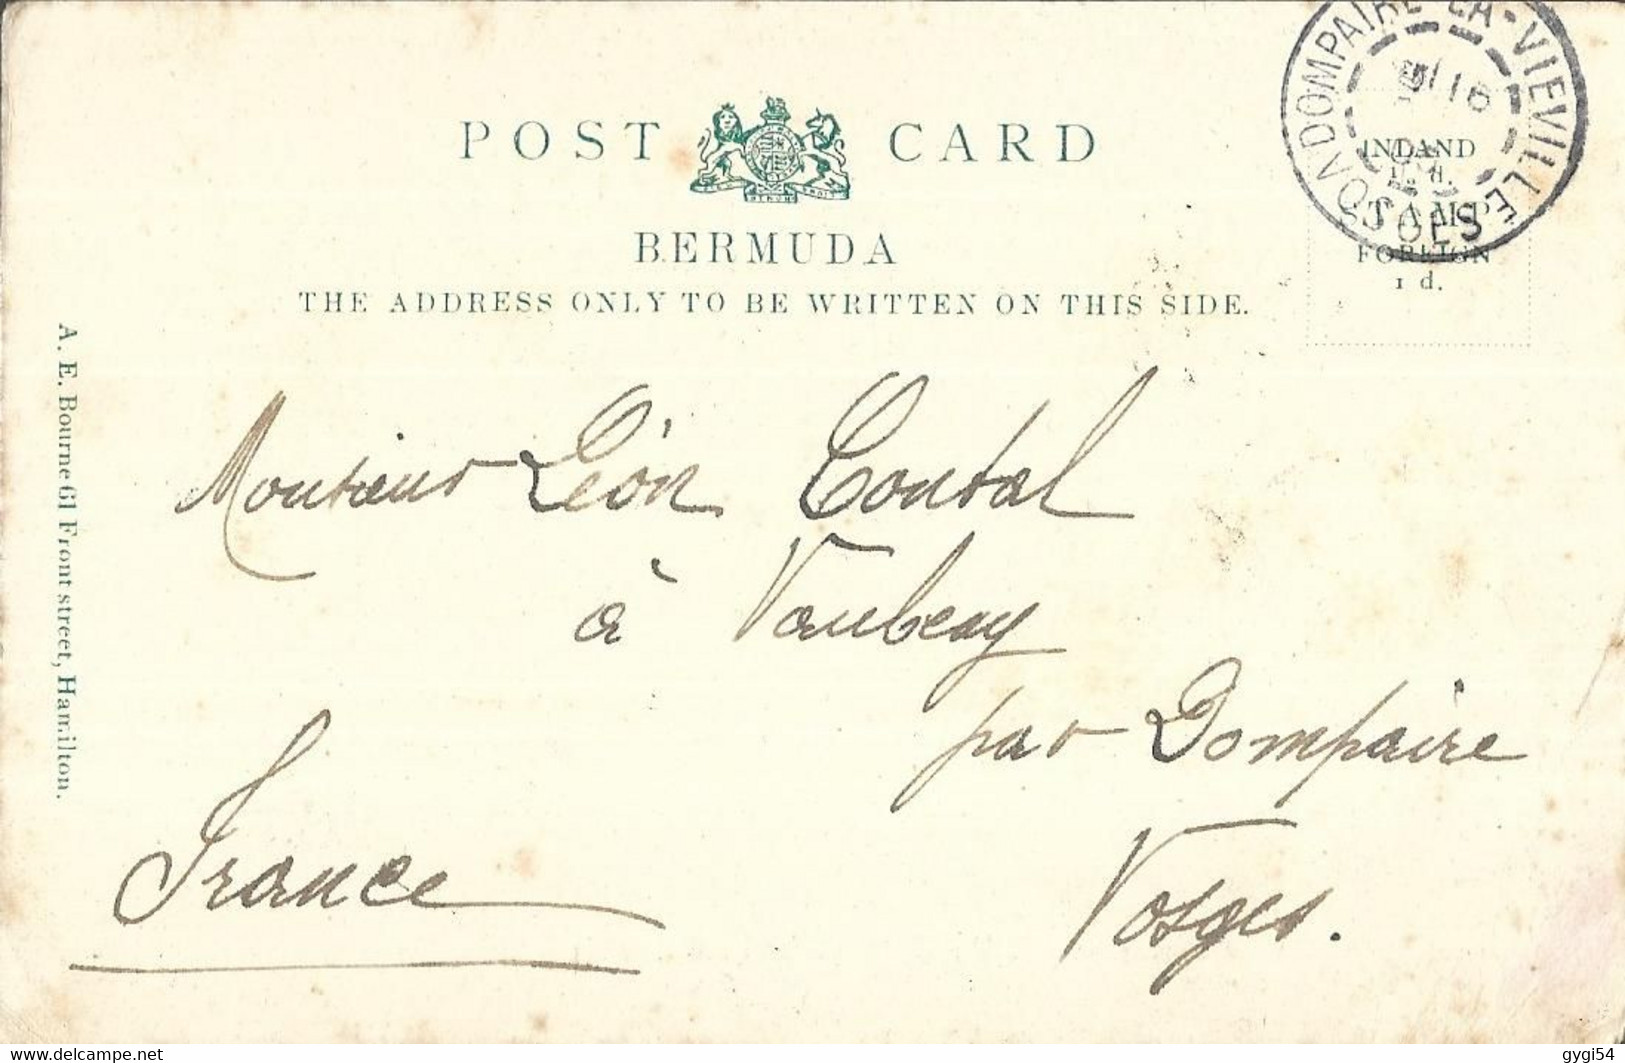 DOMPAIRE-LA-VIEVILLE
VOSGES
POST CARD
INLAND
STAMP
FOREIGN
1 d.
BERMUDA
THE ADDRESS ONLY TO BE WRITTEN ON THIS SIDE.
A. E. Bourne 61 Front street, Hamilton.
Monsieur Léon Contal
à Vaubexy
par Dompaire
Vosges.
France
www.delcampe.net
gygi54